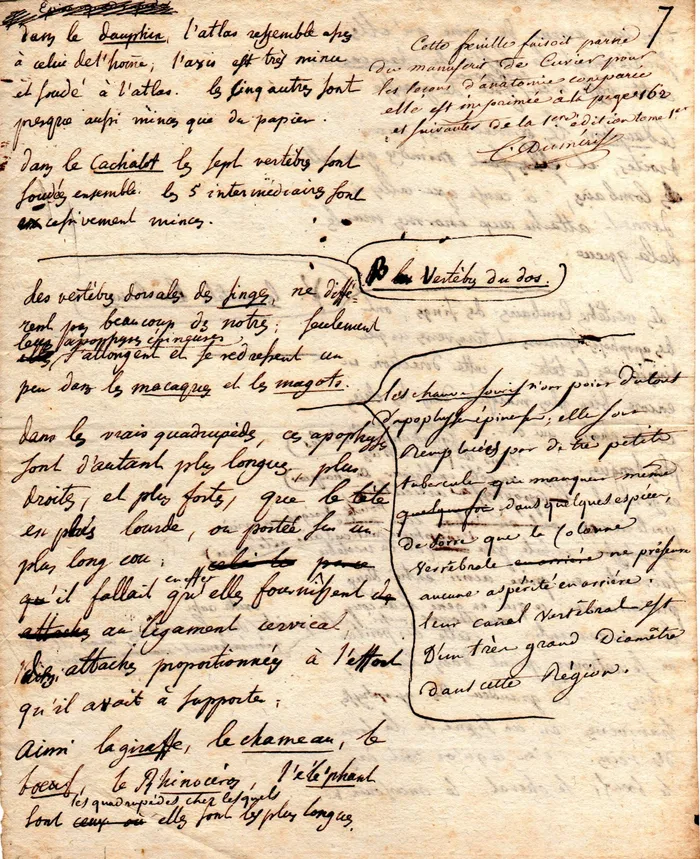 7
dans le dauphin, l'atlas ressemble assés
à celui de l'homme; l'axis est très mince
et soudé à l'atlas. les cinq autres sont
presque aussi minces que du papier.
dans le Cachalot les sept vertèbres sont
soudées ensemble. les 5 intermédiaires sont
excessivement minces.
Cette feuille faisoit partie
du manuscrit de Cuvier pour
les leçons d'anatomie comparée
elle est imprimée à la page 162
et suivantes de la 1ere édition tome 1er
C. Duméril
B les Vertèbres du dos.
les vertèbres dorsales des singes, ne diffé-
rent pas beaucoup des notres; seulement
leurs apophyses épineuses
s'allongent et se redressent un
peu dans les macaques et les magots.
dans les vrais quadrupèdes, ces apophyses
sont d'autant plus longues, plus
droites, et plus fortes, que la tête
est plus lourde, ou portée sur un
plus long cou;
qu'il fallait en effet qu'elles fournissent de
attaches au ligament cervical
des attaches proportionnées à l'effort
qu'il avait à supporter;
Ainsi la giraffe, le chameau, le
boeuf, le Rhinocéros, l'éléphant
les quadrupèdes chez lesquels
sont ceux où elles sont les plus longues.
les chauve-souris n'ont point du tout
d'apophyses épineuses; elles sont
Remplacées par de très petits
tubercules qui manquent même
quelquefois dans quelques espèces,
De sorte que la Colonne
Vertébrale en arrière ne présente
aucune aspérité en arrière.
leur canal Vertébral est
D'un très grand Diamètre
dans cette Région.